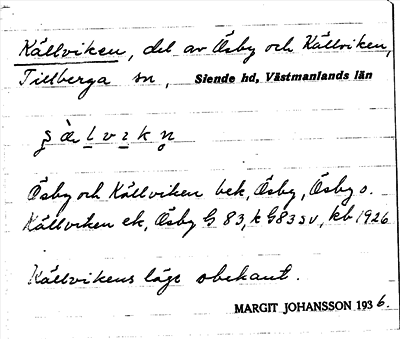 Källviken, del av Ösby och Källviken,
Tillberga sn, Siende hd, Västmanlands län
Ösby och Källviken bek, Ösby, Ösby o.
Källviken ek, Ösby G 83, k G83 sv, kb 1926
Källvikens läge obekant.
MARGIT JOHANSSON 1936.